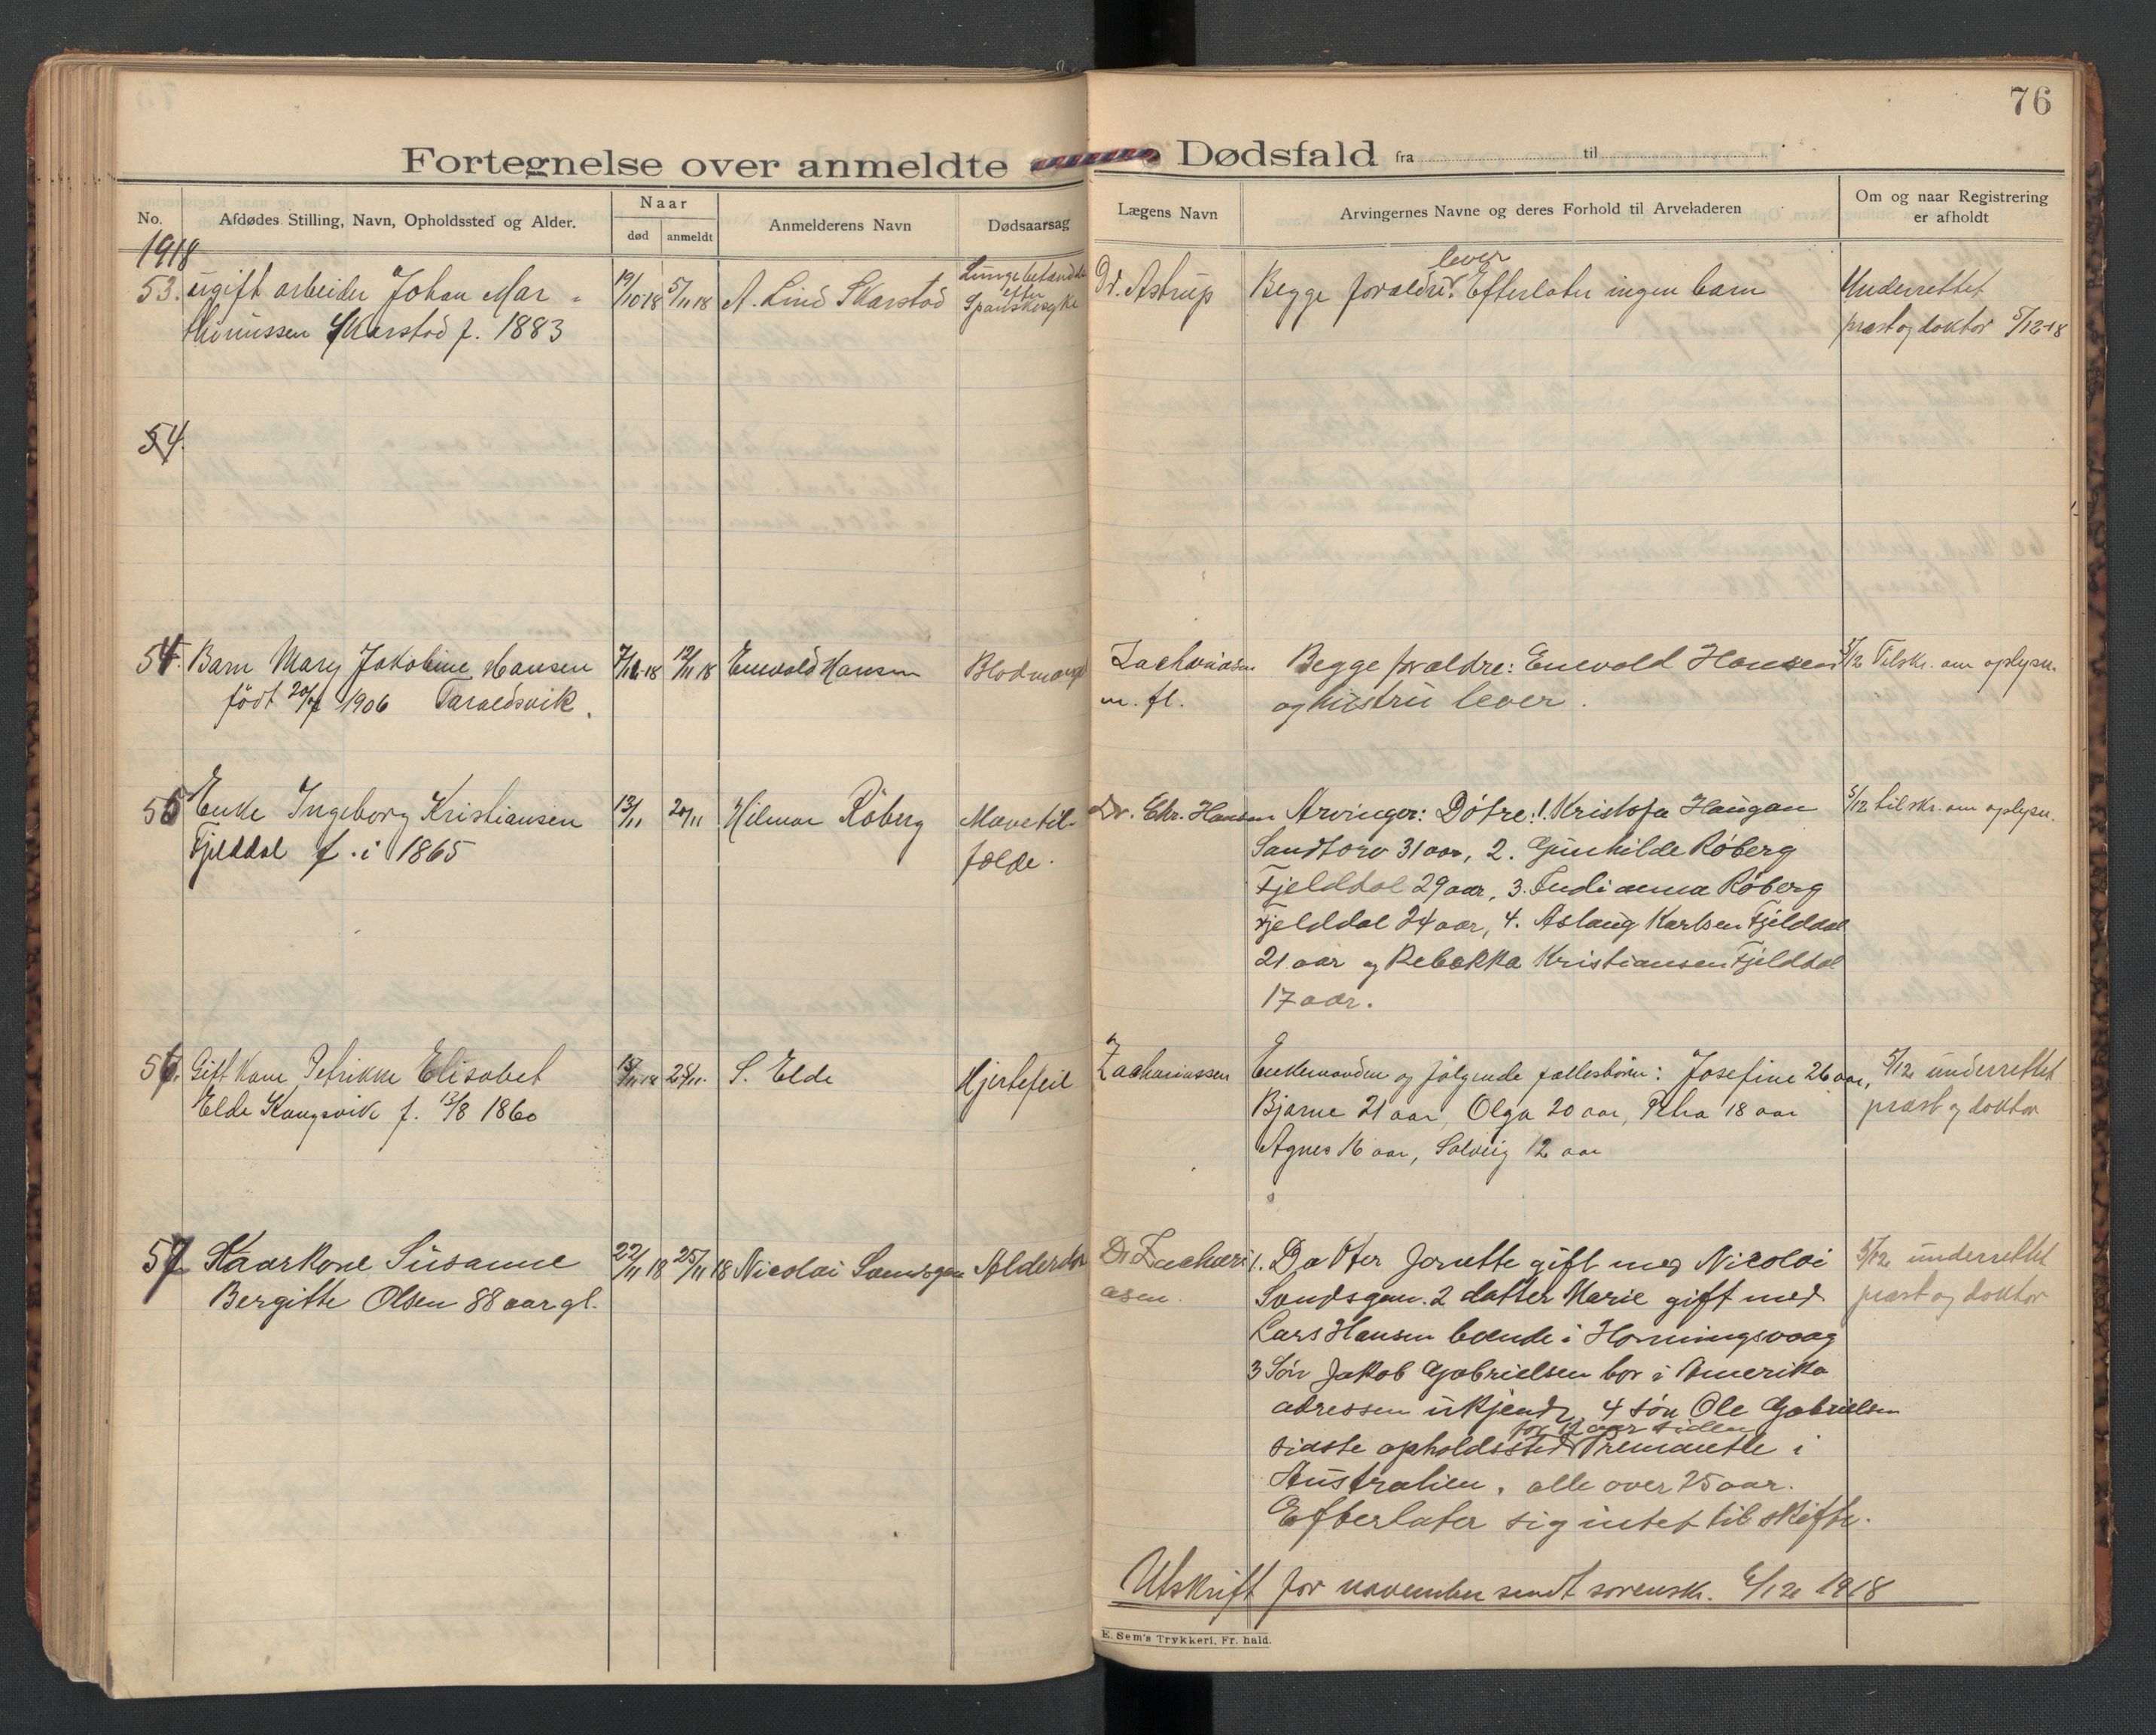 76
Fortegnelse over anmeldte Dødsfald fra til
No. Afdødes Stilling, Navn, Opholdssted og Alder. Naar død anmeldt Anmelderens Navn Dødsaarsag Lægens Navn Arvingernes Navne og deres Forhold til Arveladeren Om og naar Registrering er afholdt
1918
53. ugift arbeider Johan Mar- 19/10 18 5/11 18 A. Lind Skarstad Lungebetændelse Dr. Astrup Begge forældre lever. Efterlater ingen barn Underrettet
Skarstad f. 1883 efter Spanskesyke præst og doktor 5/12-18
54.
54. Barn Mary Jakobine Hansen 7/11-18 12/11 18 Enevold Hansen Blodmangel Zachariasen Begge forældre: Enevold Hansen 5/12 Tilskr. om oplysn.
født 20/7 1906 Taraldsvik. m. fl. og hustru lever.
55 Enke Ingeborg Kristiansen 13/11 20/11 Hilmar Røberg Mavetil- Dr. Chr. Hansen Arvinger: Døtre: 1. Kristofa Haugan 5/12 tilskr. om oplysn.
Fjelddal f. i 1865 fælde. Sandtorv 31 aar, 2. Gunhilde Røberg
Fjelddal 29 aar, 3. Indianna Røberg
Fjelddal 24 aar, 4. Aslaug Karlsen Fjelddal
21 aar og Rebekka Kristiansen Fjelddal
17 aar.
56. Gift kone Petrikke Elisabet 15/11-18 28/11. S. Elde Hjertefeil Zachariassen Enkemanden og følgende fællesbørn: Josefine 26 aar, 5/12 underrettet
Elde Kongsvik f. 13/8 1860 Bjarne 21 aar, Olga 20 aar, Petra 18 aar præst og doktor
Agnes 16 aar, Solveig 12 aar
57 Kaarkone Susanne 22/11 18 25/11 18 Nicolai Alderdom Dr Zachari- 1. Datter Janette gift med Nicolai 5/12 underrettet
Bergitte Olsen 88 aar gl. asen. 2 datter Marie gift med præst og doktor
Lars Hansen boende i Honningsvaag
3 Søn Jakob Gabrielsen bor i Amerika
adressen ukjendt, 4 søn Ole Gabrielsen
for aar siden
sidste opholdssted Fremantle i
Australien, alle over 25 aar.
Efterlater sig intet til skifte.
Utskrift for november sendt sorensk. 6/12 1918
E. Sem's Trykkeri, Fr. hald.